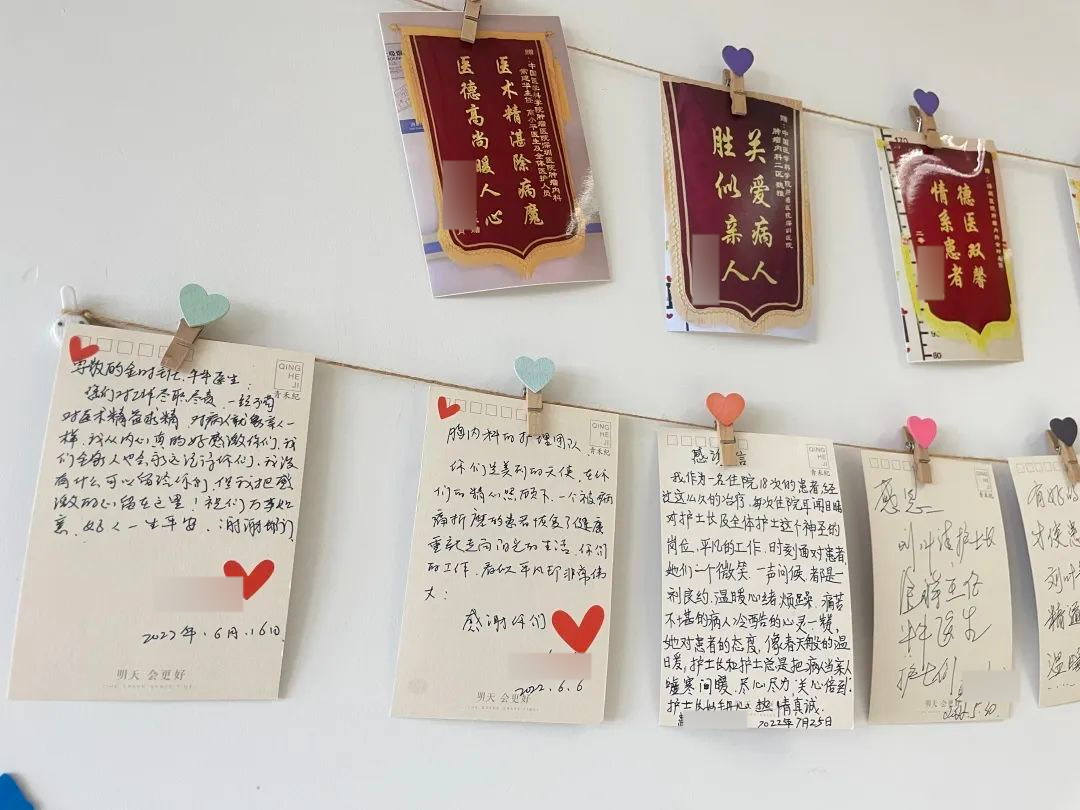 赠：中国医学科学院肿瘤医院深圳医院肿瘤内科
医术精湛除病魔
医德高尚暖人心
赠：中国医学科学院肿瘤医院深圳医院
肿瘤内科二区
关爱病人
胜似亲人
德医双馨
情系患者
QING
HE
JI
青禾纪
你们对工作尽职尽责
对医术精益求精 对病人就象亲人一
样，我从内心真的好感激你们，我
们全家人也会永远记得你们，我没
有什么可以留给你们，但我把感
激的心留在这里！祝们万事如
意，好人一生平安
2022年.6月.16日
明天 会更好
QING
HE
JI
青禾纪
胸内科的护理团队
你们是美丽的天使，在你
们的精心照顾下，一个被病
痛折磨的患者恢复了健康
重新走向阳光的生活，你们
的工作，看似平凡却非常伟
大：
感谢你们
2022.6.6
明天 会更好
QING
HE
JI
青禾纪
感谢信
我作为一名住院18次的患者，经
过这么久的治疗，每次住院耳闻目睹
对护士长及全体护士这个神圣的
岗位，平凡的工作，时刻面对患者，
她们一个微笑，一声问候，都是一
剂良药，温暖心绪烦躁，痛苦
不堪的病人冷酷的心灵！赞，
她对患者的态度，像春天般的温
暖，护士长和护士总是把病人当亲人
嘘寒问暖，尽心尽力，关心倍到，
热情真诚.
2022年7月25日
QING
HE
JI
青禾纪
感恩
护士长
主任
牛牛医生
护士们
5.30
明天 会更好
有好的
精通
温暖